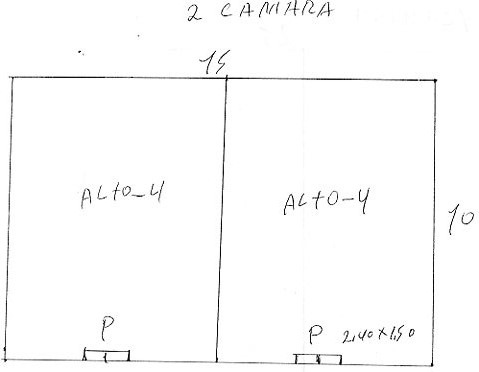 2 CAMARA
15
ALTO-4 ALTO-4
10
P P 2,40x1,50